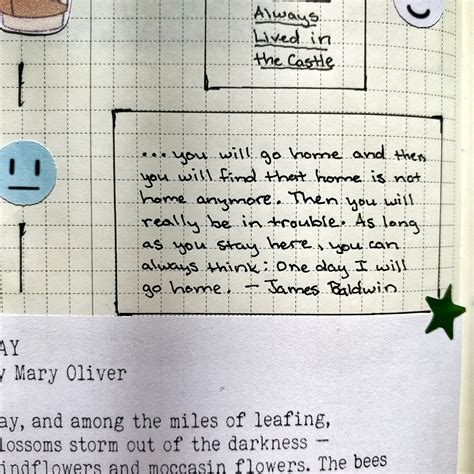 Always
Lived in
the Castle
...you will go home and then
you will find that home is not
home anymore. Then you will
really be in trouble. As long
as you stay here, you can
always think: One day I will
go home. — James Baldwin
AY
y Mary Oliver
ay, and among the miles of leafing,
lossoms storm out of the darkness —
indflowers and moccasin flowers. The bees